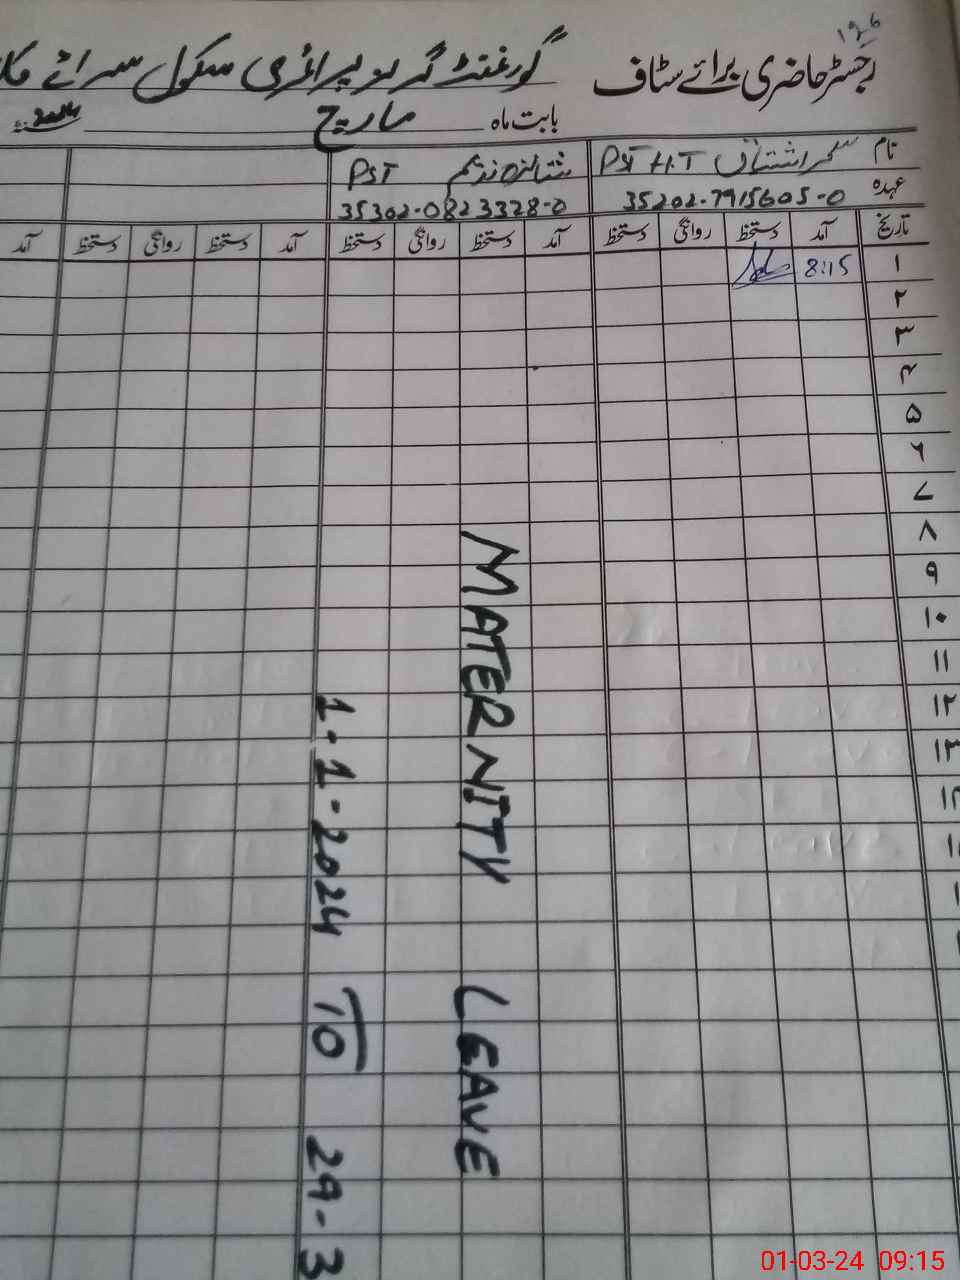 ۱۹۶
رجسٹر حاضری برائے سٹاف گورنمنٹ گرلز پرائمری سکول سرائے
بابت ماہ مارچ 2024
نام سحر اشتیاق PST H.T شائزہ ندیم PST
عہدہ 35202-7915605-0 35302-0823328-0
تاریخ آمد دستخط روانگی دستخط آمد دستخط روانگی دستخط آمد دستخط روانگی دستخط آمد
۱ 8:15
۲
۳
۴
۵
۶
۷
۸
۹
۱۰
۱۱
۱۲
۱۳
MATERNITY LEAVE
1-1-2024 TO 29-3
01-03-24 09:15